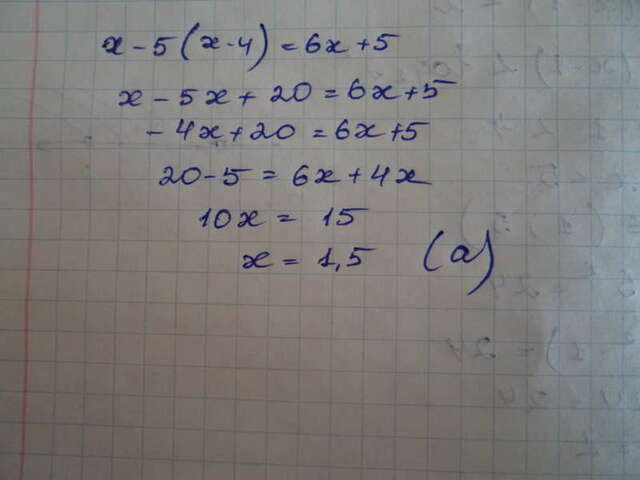 x - 5(x - 4) = 6x + 5
x - 5x + 20 = 6x + 5
- 4x + 20 = 6x + 5
20 - 5 = 6x + 4x
10x = 15
x = 1,5 (a)